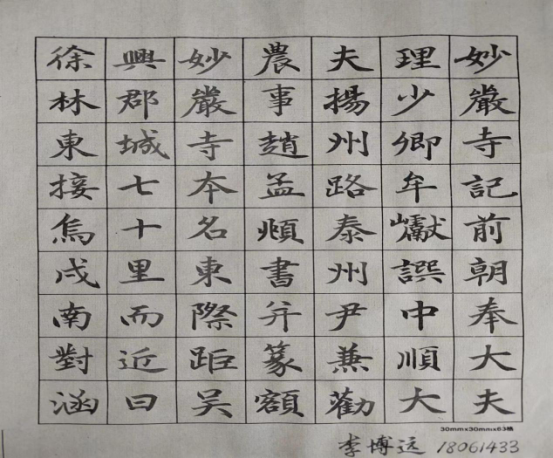 妙嚴寺記前朝奉大夫
理少卿牟巘譔中順大
夫揚州路泰州尹兼勸
農事趙孟頫書并篆額
妙嚴寺本名東際距吳
興郡城七十里而近曰
徐林東接烏戍南對涵
30mmx30mmx63格
李博远 18061433